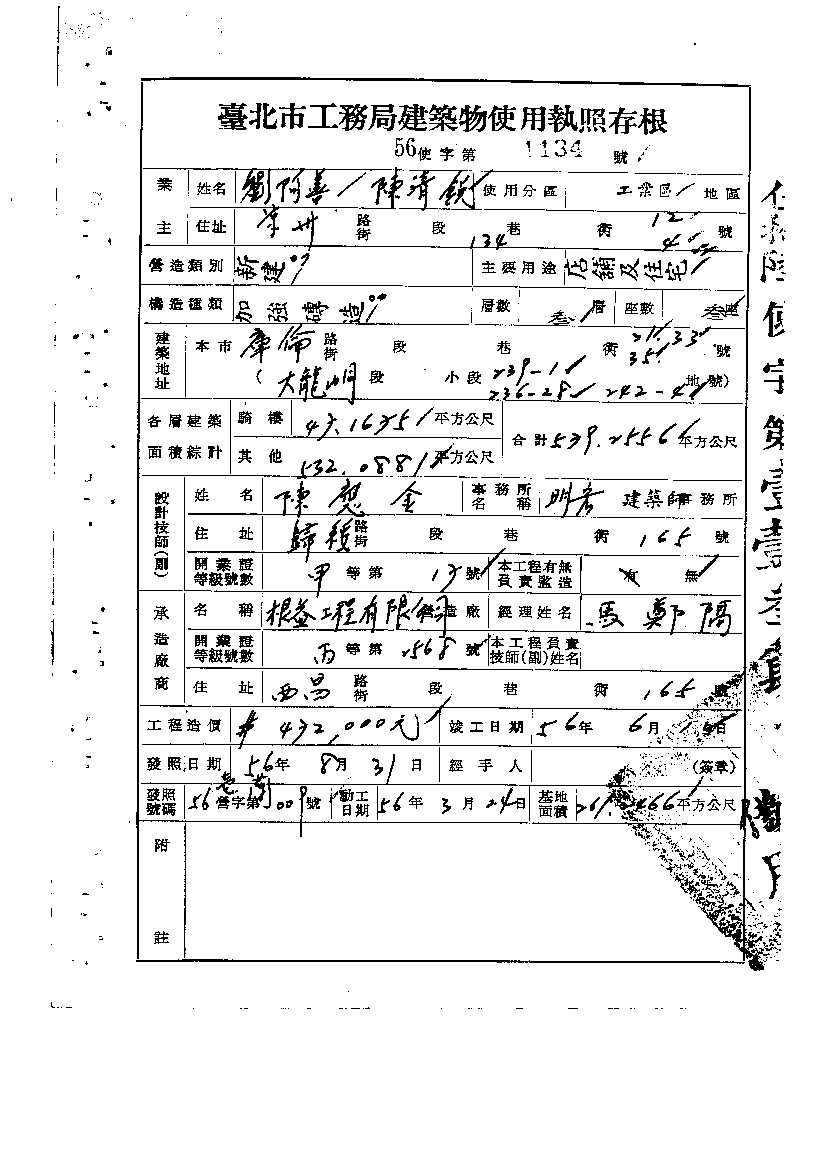 臺北市工務局建築物使用執照存根
56使字第 1134 號
業主 姓名 劉阿善 陳清銳 使用分區 工業區 地區
住址 涼州 路街 段 134 巷 衖 12 號
營造類別 新建 主要用途 店舖及住宅
構造種類 加強磚造 層數 叁 層 座數 叁座
建築地址 本市 庫倫 路街 段 巷 衖 21.33 35 號
(大龍峒 段 小段 239-1 236-28 242-4 地號)
各層建築面積綜計 騎樓 平方公尺 合計 539.2556 平方公尺
其他 532.0881 平方公尺
設計技師(副) 姓名 陳應金 事務所名稱 明彥 建築師事務所
住址 歸綏 路街 段 巷 衖 165 號
開業證等級號數 甲 等第 號 本工程有無負責監造 有 無
承造廠商 名稱 根益工程有限公司 營造廠 經理姓名 馬鄭隅
開業證等級號數 丙 等第 2568 號 本工程負責技師(副)姓名
住址 西昌 路街 段 巷 衖 165 號
工程造價 432,000元 竣工日期 56年 6月 日
發照日期 56年 8月 31日 經手人 (簽章)
發照號碼 56營字第009號 動工日期 56年 3月 24日 基地面積 261.2466 平方公尺
附註
使字第壹壹叁